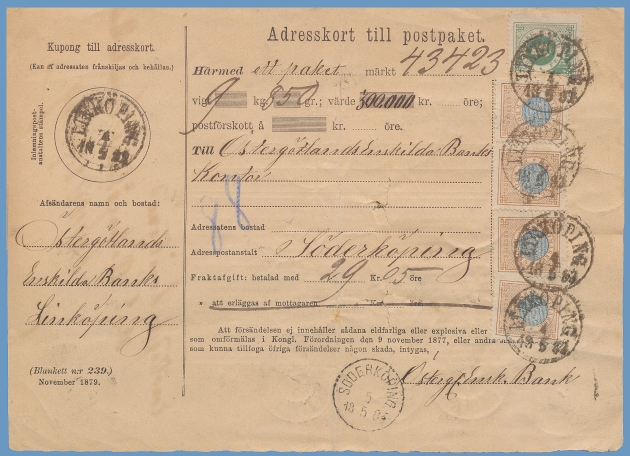 Kupong till adresskort.
(Kan af adressaten frånskiljas och behållas.)
Inlemningspost-
anstaltens stämpel.
LINKÖPING
Afsändarens namn och bostad:
Östergötlands
Enskilda Banks
Linköping
(Blankett n:r 239.)
November 1879.
Adresskort till postpaket.
Härmed ett paket märkt 43423
vigt 9 kg. 850 gr.; värde 300.000 kr. öre;
postförskott å kr. öre.
Till Östergötlands Enskilda Banks
Kontor
88
Adressatens bostad
Adresspostanstalt Söderköping
Fraktafgift: betalad med 29 Kr. 05 öre
" att erläggas af mottagaren Kr. öre
Att försändelsen ej innehåller sådana eldfarliga eller explosiva
som omförmälas i Kongl. Förordningen den 9 november 1877, eller andra
som kunna tillfoga öfriga försändelser någon skada, intygas,
Östergötl. Ensk. Bank
SÖDERKÖPING
5
18 5
LINKÖPING
LINKÖPING